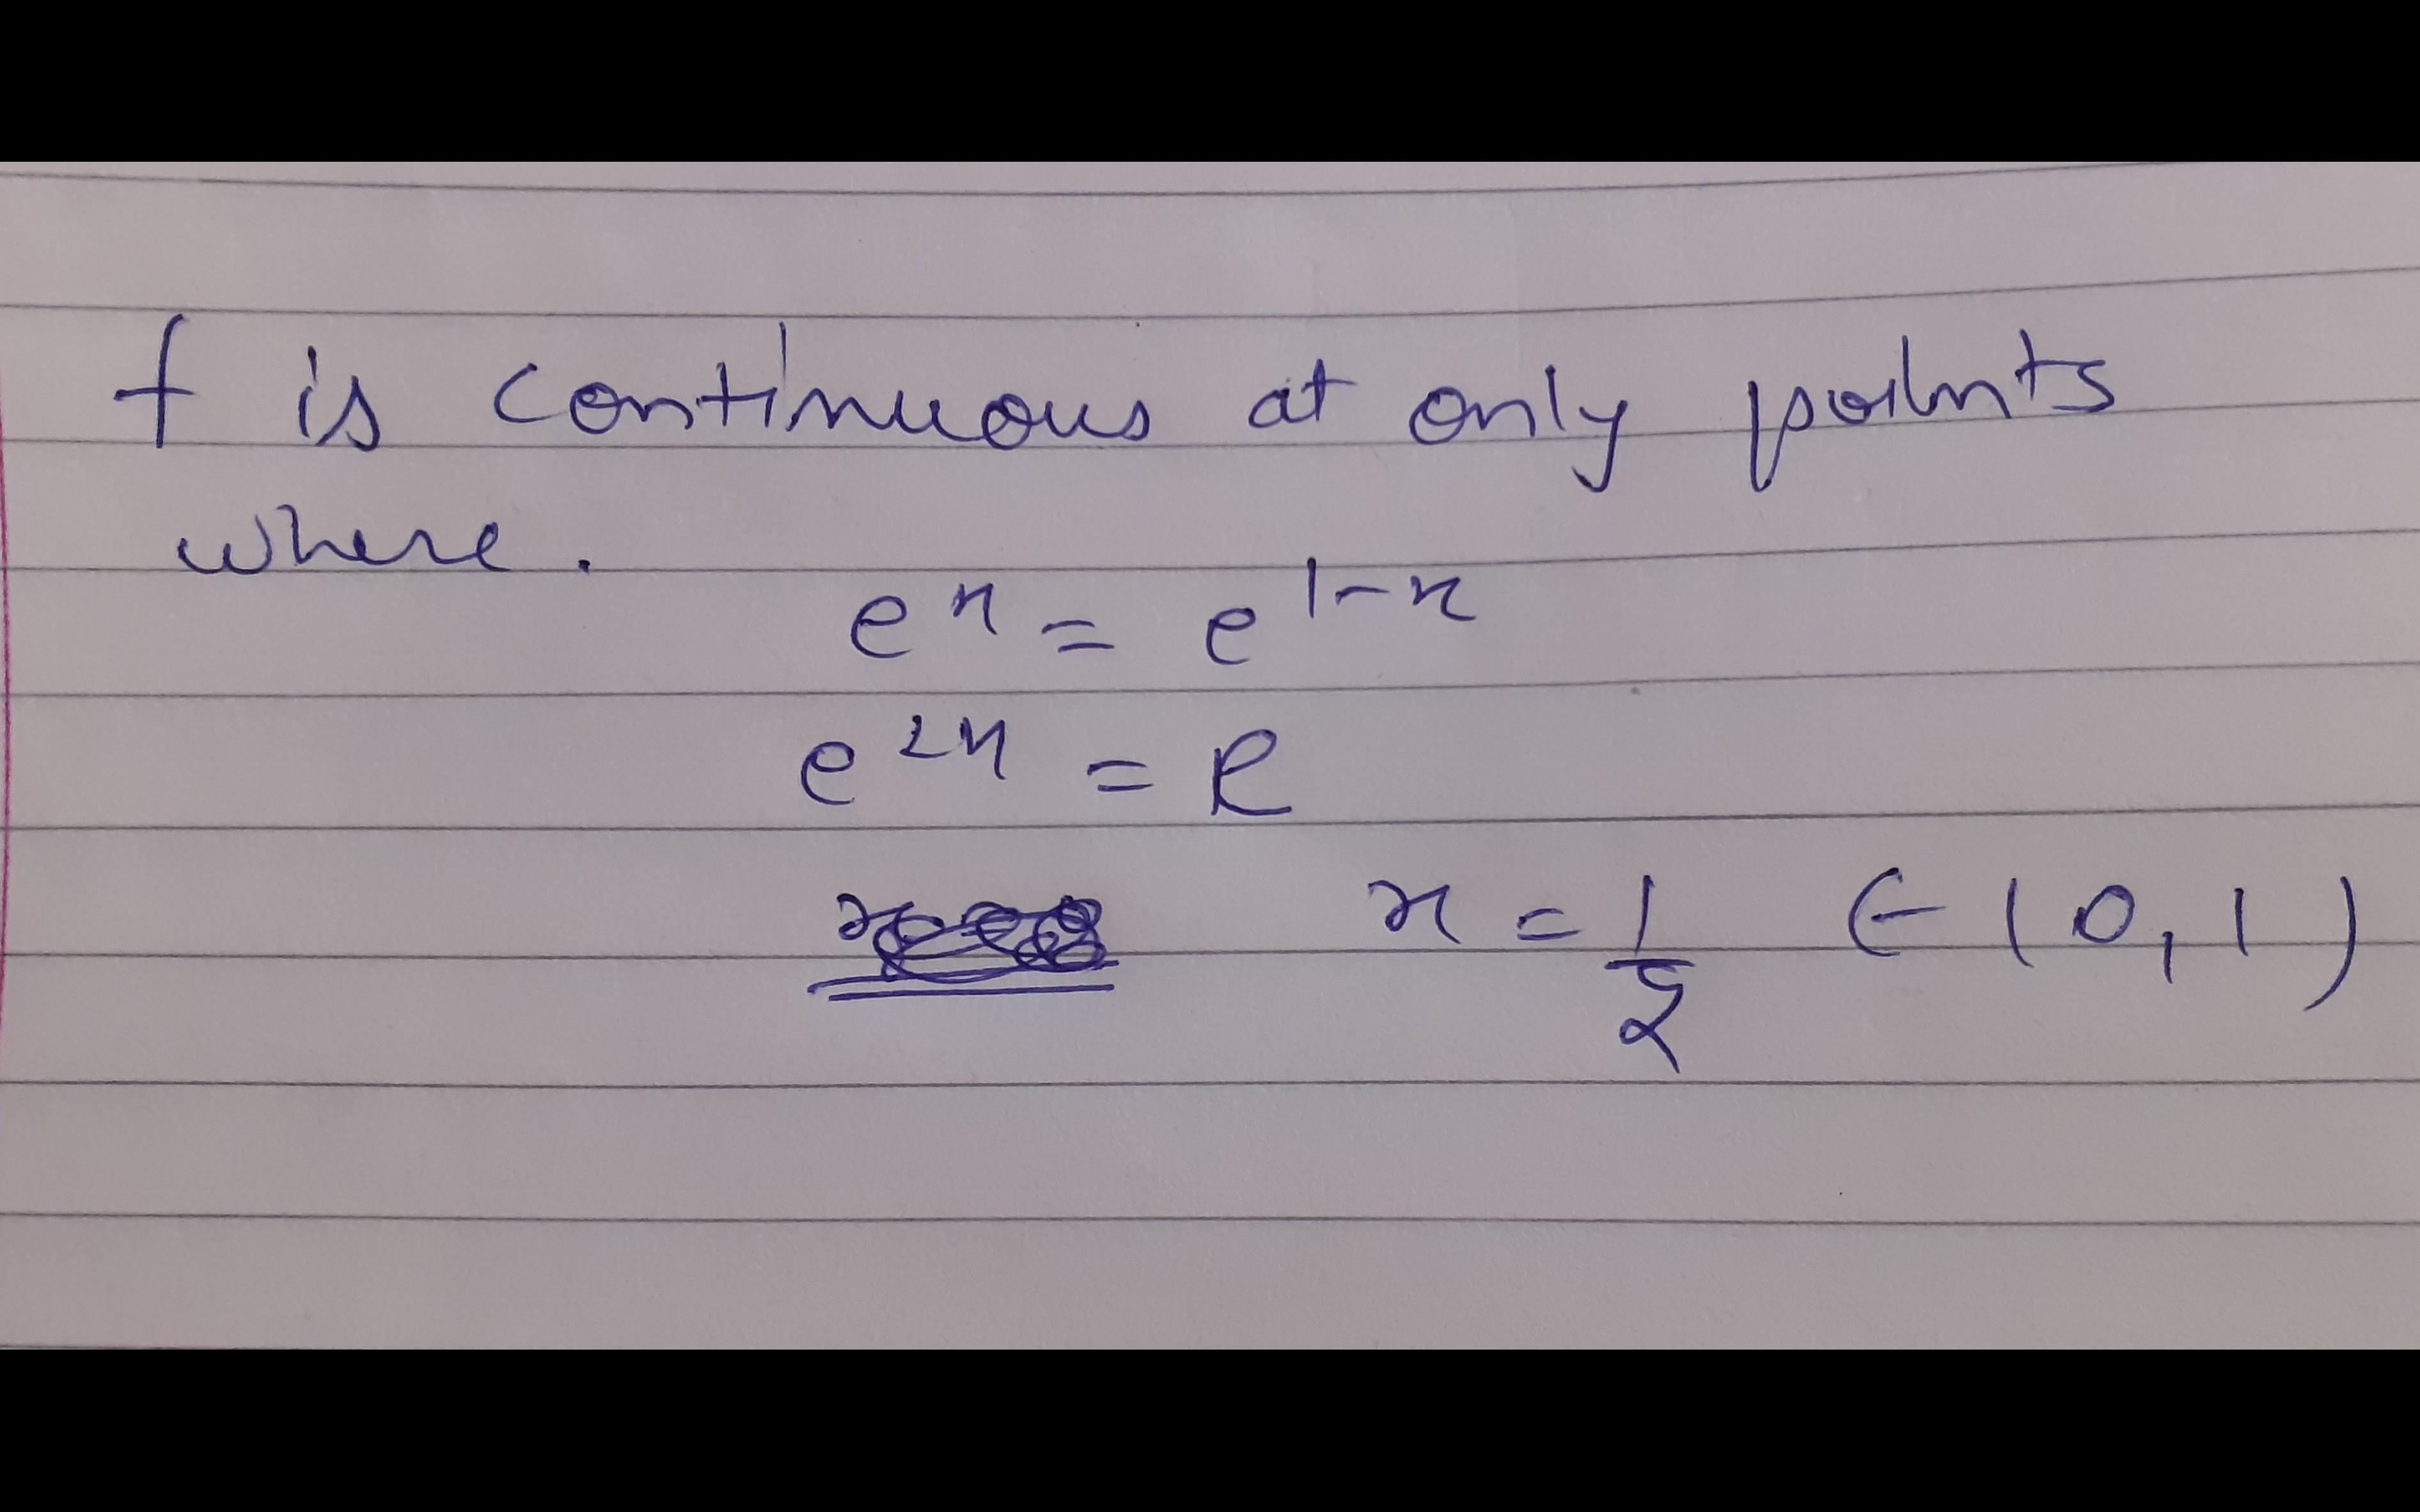 f is continuous at only points
where.
eˣ = e¹⁻ˣ
e²ˣ = e
x = 1/2 ∈ (0,1)